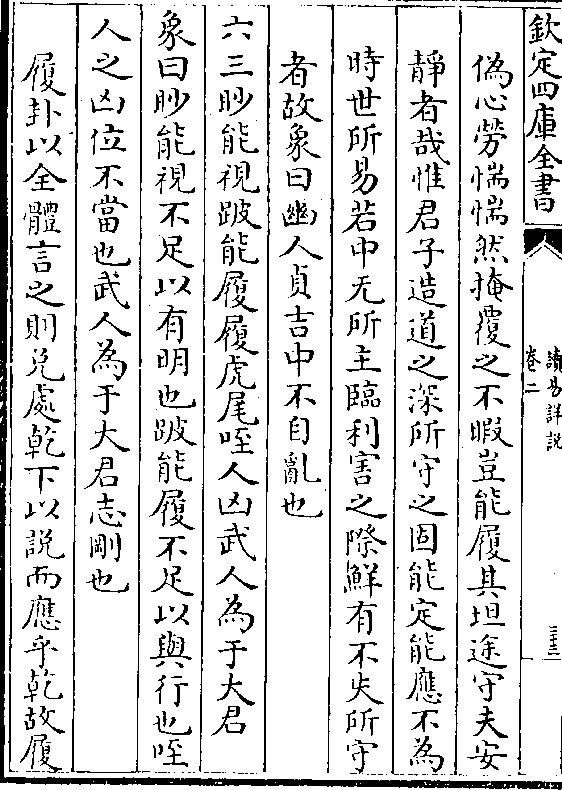 欽定四庫全書
讀易詳說
卷二
三十三
偽心勞惴惴然掩覆之不暇豈能履其坦途守夫安
靜者哉惟君子造道之深所守之固能定能應不為
時世所易若中无所主臨利害之際鮮有不失所守
者故象曰幽人貞吉中不自亂也
六三眇能視跛能履履虎尾咥人凶武人為于大君
象曰眇能視不足以有明也跛能履不足以與行也咥
人之凶位不當也武人為于大君志剛也
履卦以全體言之則兑處乾下以説而應乎乾故履